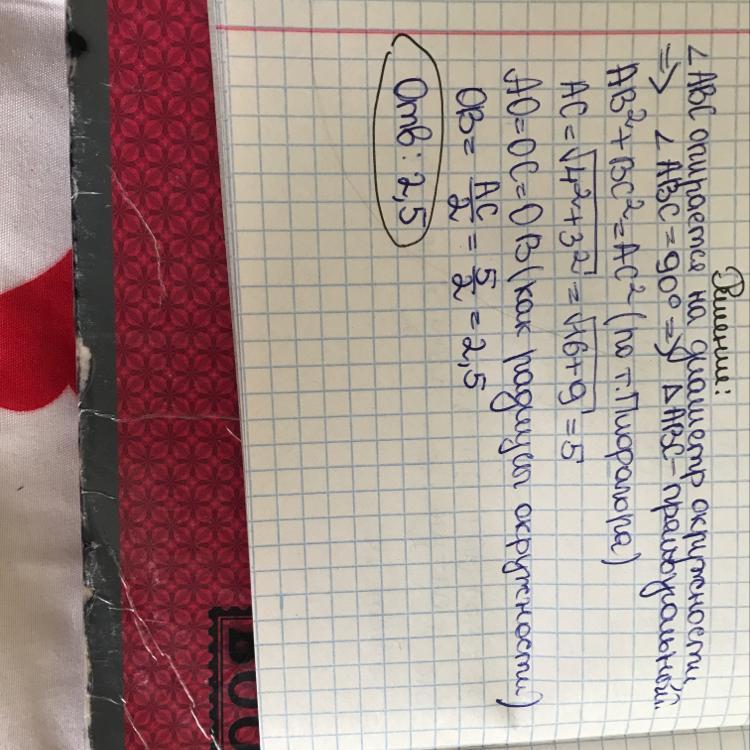 Решение:
∠ABC опирается на диаметр окружности
=> ∠ABC = 90° => ΔABC – прямоугольный.
AB² + BC² = AC² (по т. Пифагора)
AC = √4² + 3² = √16 + 9 = 5
AO = OC = OB (как радиусы окружности)
OB = AC/2 = 5/2 = 2,5
Отв: 2,5